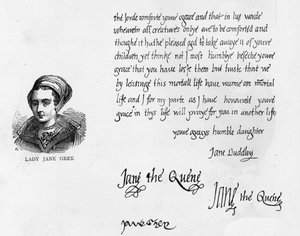 The lorde comforte youre grace and that in his worde
wherein all creatures onlye are to be comforted and
thoughe it hathe pleased god to take awaye ij of youre
children, yet thincke not I most humblye beseche youre
grace that you have loste them but truste that we
by leavinge this mortall life have wunne an immortal
life and I for my parte as I have honoured youre
grace in this life will praye for you in another life
youre gracys humble daughter
Jane Duddley
LADY JANE GREY.
Jane the Quene
Jane the Quene